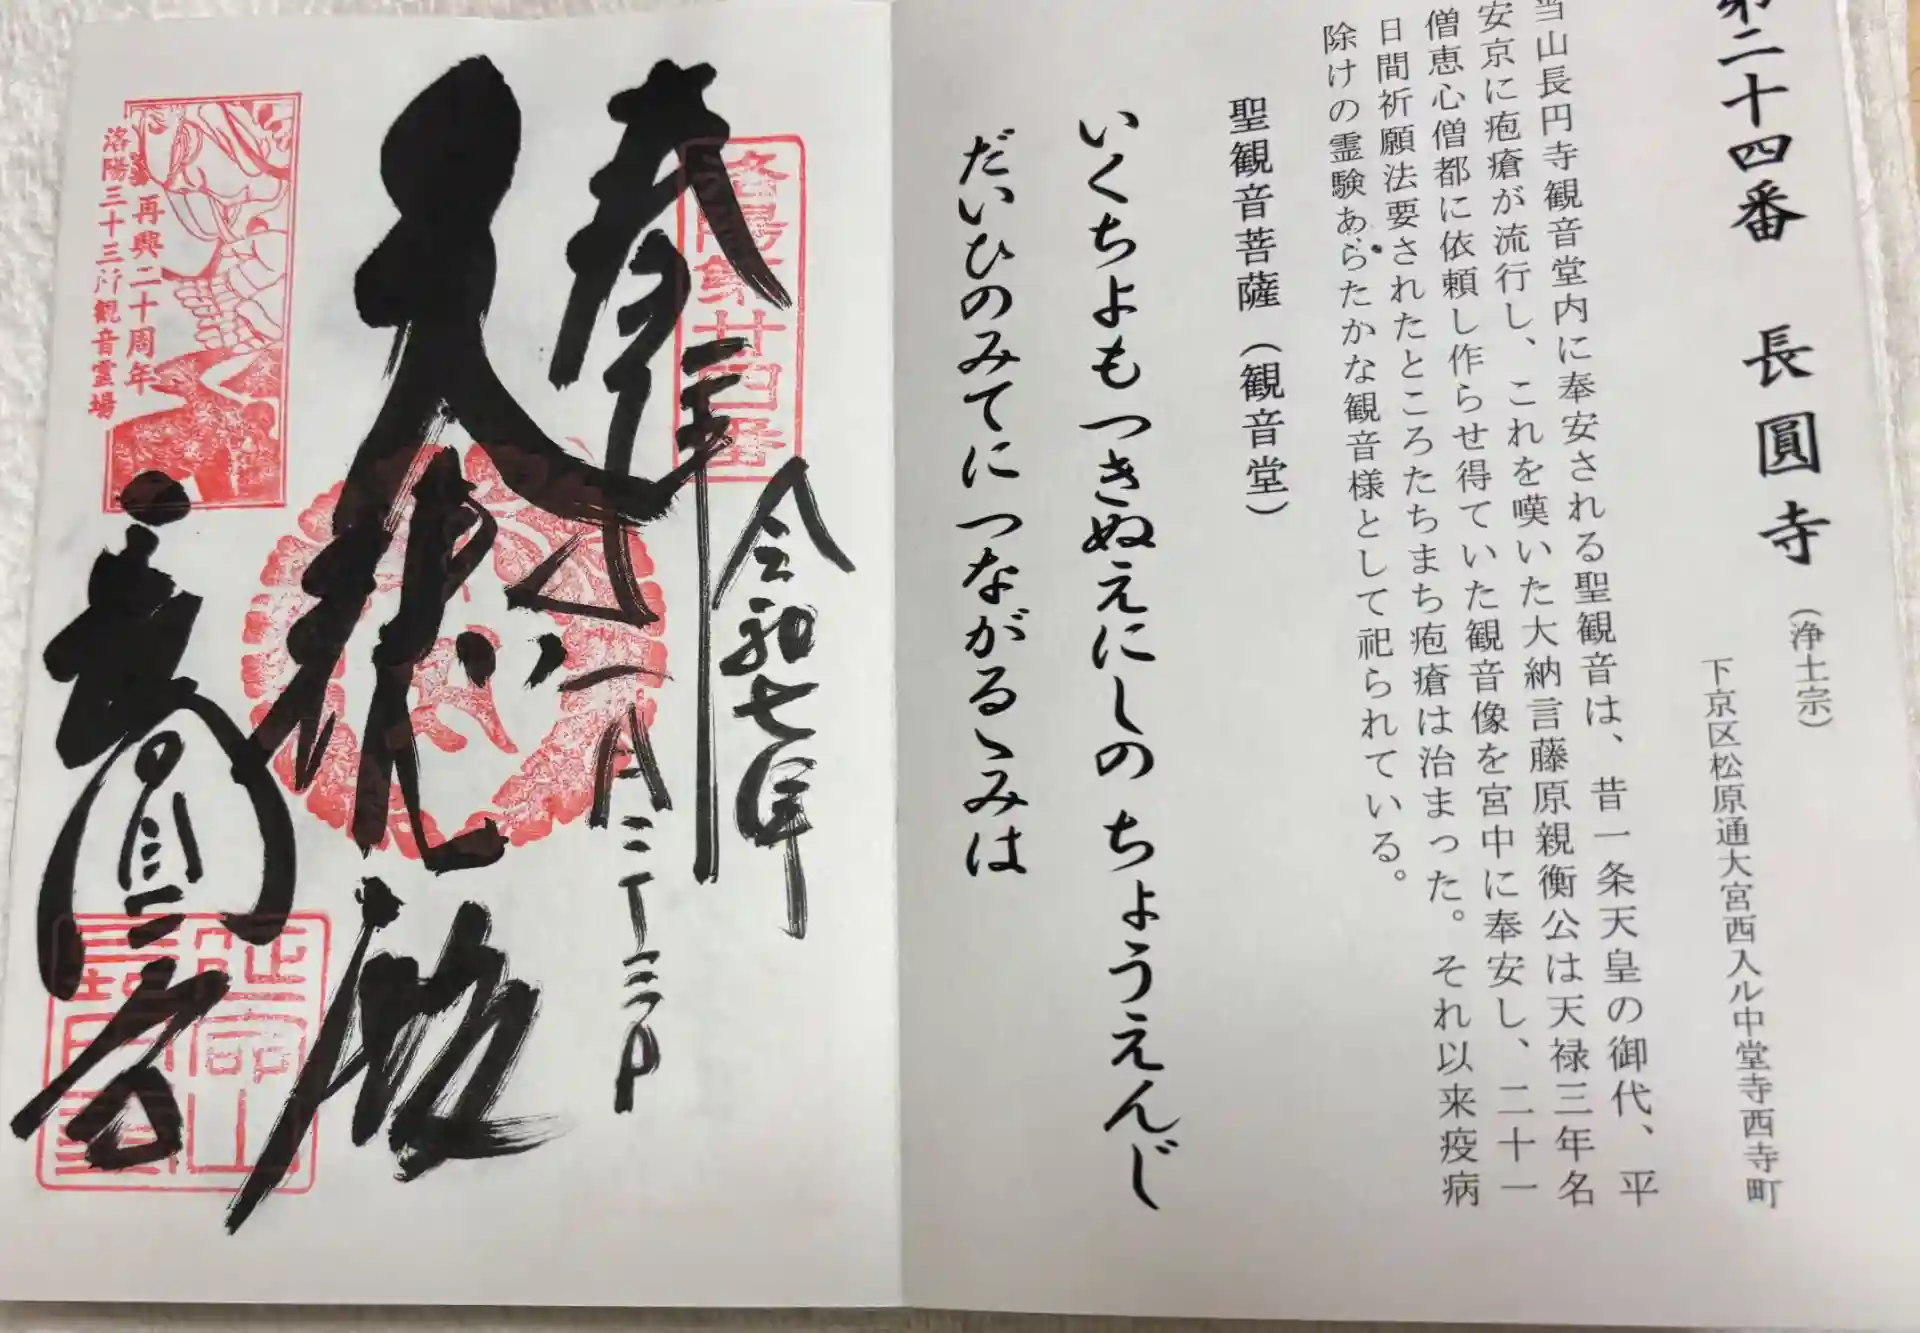 第二十四番 長圓寺 (浄土宗)
下京区松原通大宮西入ル中堂寺西寺町
当山長円寺観音堂内に奉安される聖観音は、昔一条天皇の御代、平
安京に疱瘡が流行し、これを嘆いた大納言藤原親衡公は天禄三年名
僧恵心僧都に依頼し作らせ得ていた観音像を宮中に奉安し、二十一
日間祈願法要されたところたちまち疱瘡は治まった。それ以来疫病
除けの霊験あらたかな観音様として祀られている。
聖観音菩薩(観音堂)
いくちよもつきぬえにしの ちょうえんじ
だいひのみてにつながるゝみは
洛陽第廿四番
奉拝
令和七年
一月二十三日
大悲殿
再興二十周年
洛陽三十三所観音霊場
長圓寺
延命山